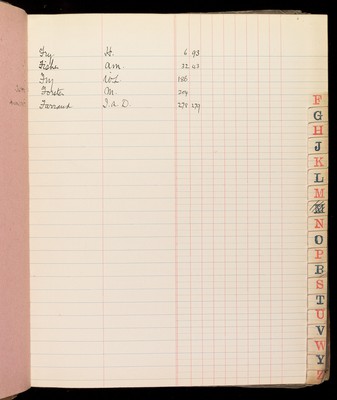 Fry H. 6 93
Fisher A.M. 32 43
Fry W.L. 186
Forster M. 204
Farrand I.A.D. 278 279
F
G
H
J
K
L
M
N
O
P
S
T
U
V
W
Y
Z